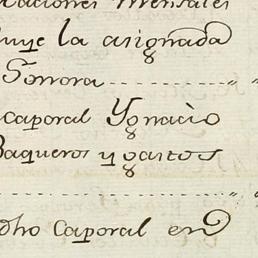 raciones mensales
luye la asignada
Sonora
caporal Ygnacio
Baqueros y gastos
dho Caporal en